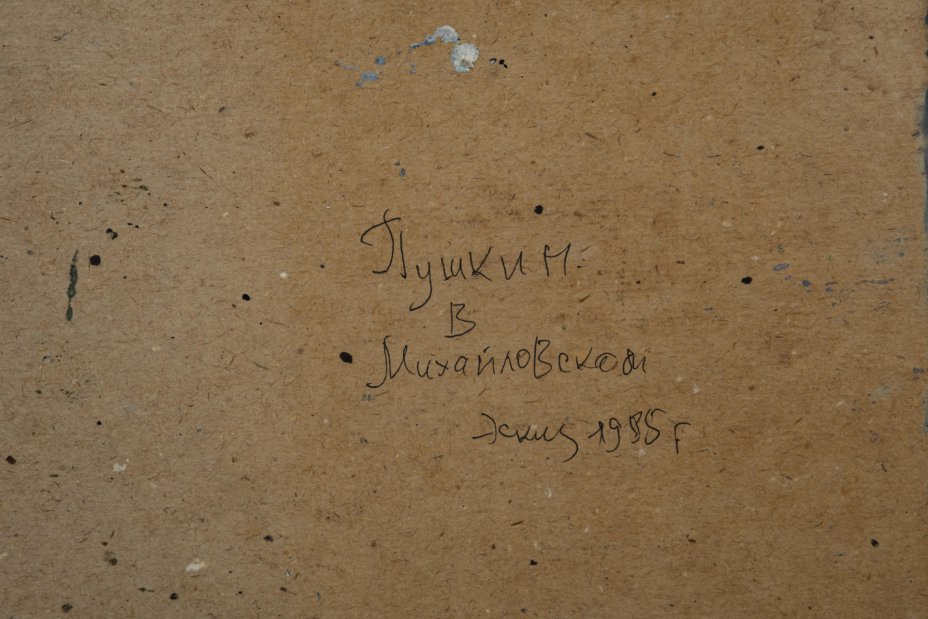 Пушкин
в
Михайловском
Эскиз 1985 г